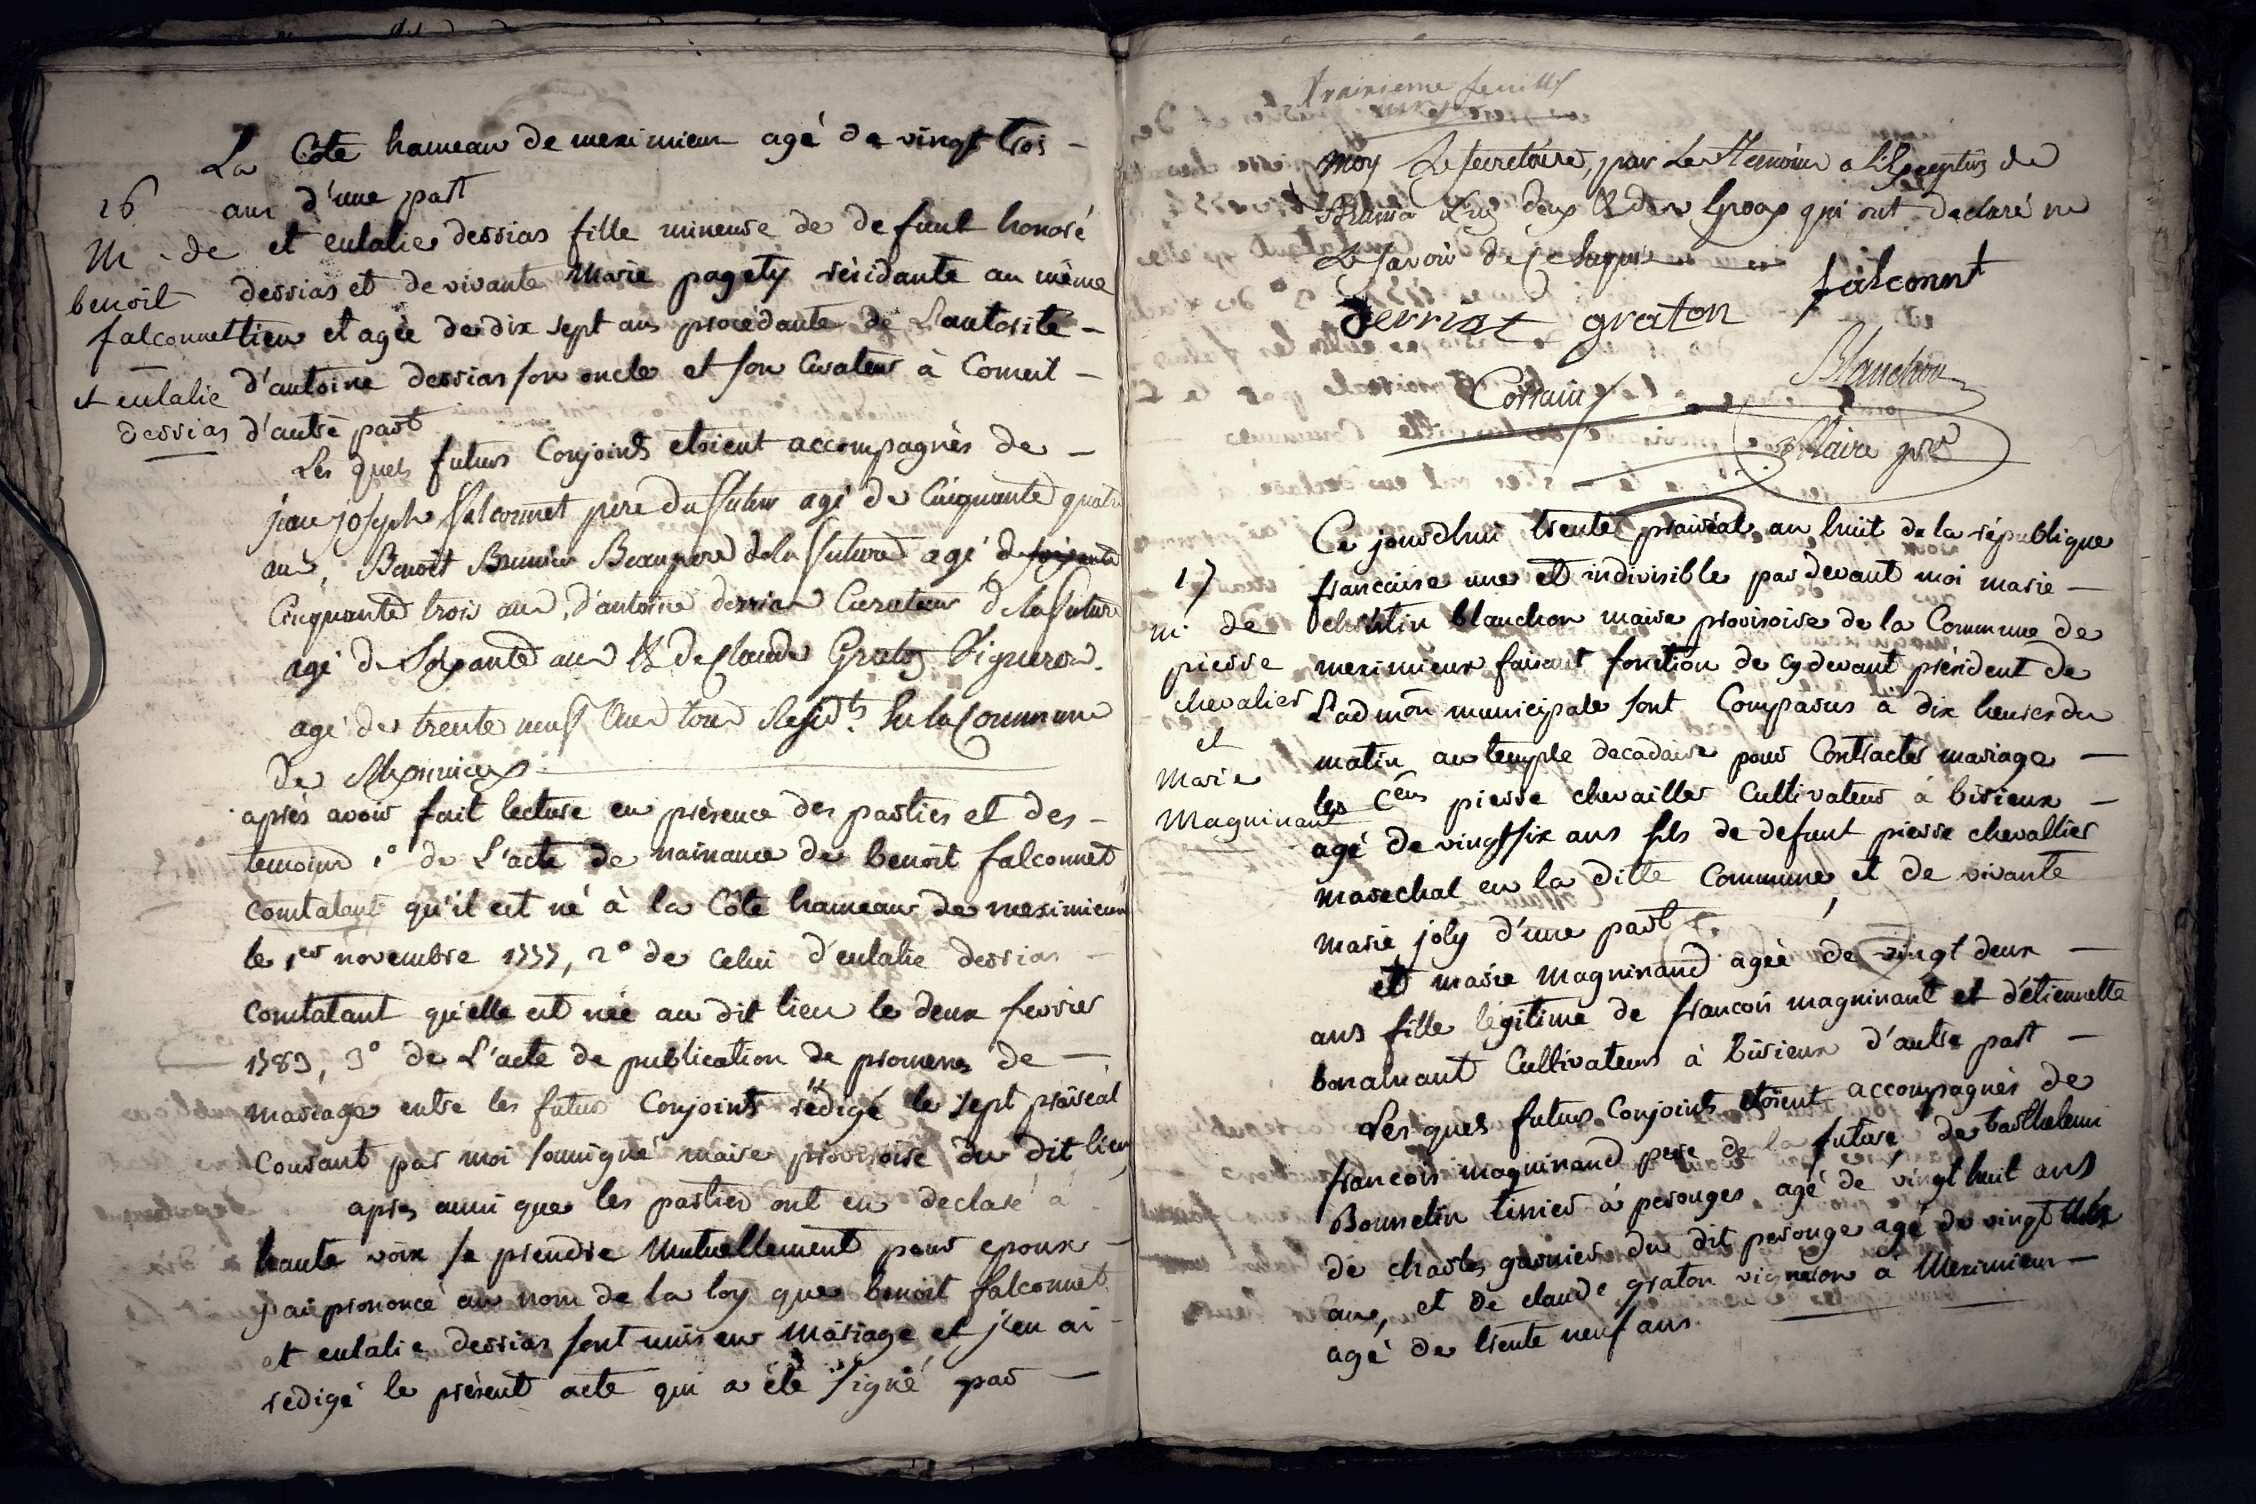 La Côte hameau de meximieux agé de vingt trois -
ans d'une part
16
M. de
benoit
falconnet
et eulalie
derrias
et eulalie derrias fille mineure de defunt honoré
derrias et de vivante Marie pagety résidante au même
lieu et agée de dix sept ans procédante de L'autorité -
d'antoine derrias son oncle et son Curateur à Conseil -
d'autre part
Les quels futurs Conjoints etoient accompagnés de -
jean joseph falconnet pere du futur agé de Cinquante quatre
ans, Benoit Brunier Beaupere de la future agé de soixante
Cinquante trois ans, d'antoine derrias Curateur de la future
agé de Soixante ans & de Claude Graton Vigneron
agé de trente neuf ans tous Resid.ts en la Commune
de Meximieux
après avoir fait lecture en présence des parties et des -
temoins 1° de L'acte de naissance de benoit falconnet
constatant qu'il est né à la Côte hameau de meximieux
le 1er novembre 1777, 2° de Celui d'eulalie derrias -
constatant qu'elle est née au dit lieu le deux fevrier
1783, 3° de L'acte de publication de promesse de -
mariage entre les futurs Conjoints rédigé le sept prairéal
Courant par moi soussigné maire provisoire du dit lieu
apres aussi que les parties ont eu declaré à
haute voix se prendre Mutuellement pour epoux -
j'ai prononcé au nom de la loy que benoit falconnet
et eulalie derrias sont unis en mariage et j'en ai -
redigé le présent acte qui a été signé par -
feuille
moy Le secretaire, par Les Temoins a L'Exception de
Brunier & des Epoux qui ont declaré ne
Le savoir de ce
falconnt
derriaz graton
Blanchon
Cossain
Maire pvre
17
m. de
pierre
chevalier
et
Marie
Magninant
Ce jourdhui trente prairéal an huit de la république
francaise une et indivisible par devant moi marie -
blanchon maire provisoire de la Commune de
meximieux faisant fonction de cy devant président de
L'admon municipale sont Comparus à dix heures du
matin au temple decadaire pour Contracter mariage -
les Cens pierre chevallier Cultivateur à birieux -
agé de vingt six ans fils de defunt pierre chevallier
marechal en la ditte Commune, et de vivante
marie joly d'une part
et marie magninand agée de vingt deux -
ans fille légitime de francois magninant et d'étiennette
bonamant Cultivateurs à birieux d'autre part -
Les quels futurs Conjoints etoient accompagnés de
francois magninand pere de la future, de barthelemi
Bonnetin tissier à perouges agé de vingt huit ans
de charles garnier du dit perouge agé de vingt six
ans, et de claude graton vigneron à Meximieux -
agé de trente neuf ans.